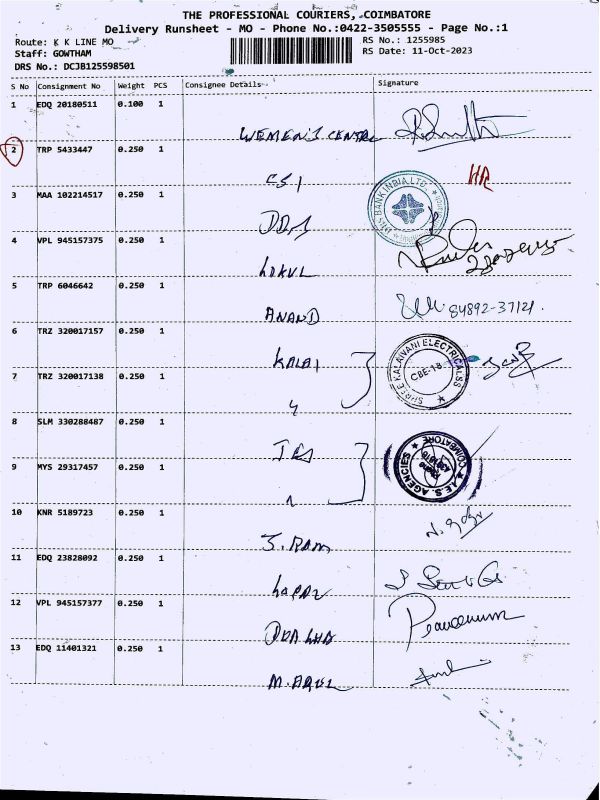 THE PROFESSIONAL COURIERS, COIMBATORE
Delivery Runsheet - MO - Phone No.:0422-3505555 - Page No.:1
Route: K K LINE MO
RS No.: 1255985
Staff: GOWTHAM
RS Date: 11-Oct-2023
DRS No.: DCJB125598501
S No Consignment No Weight PCS Consignee Details Signature
1 EDQ 20180511 0.100 1
WEMEN'S CENTRE
2 TRP 5433447 0.250 1
CSI HR
3 MAA 102214517 0.250 1
DBS BANK INDIA LTD.
DBS
4 VPL 945157375 0.250 1
5 TRP 6046642 0.250 1
ANAND 84892-37121
6 TRZ 320017157 0.250 1
KALAI
SHREE KALAIVANI ELECTRICALSS
CBE-18
7 TRZ 320017138 0.250 1
8 SLM 330288487 0.250 1
COIMBATORE
J.E.S. AGENCIES
Phone
9 MYS 29317457 0.250 1
10 KNR 5189723 0.250 1
J. RAM
11 EDQ 23828092 0.250 1
12 VPL 945157377 0.250 1
13 EDQ 11401321 0.250 1
M. ARUL